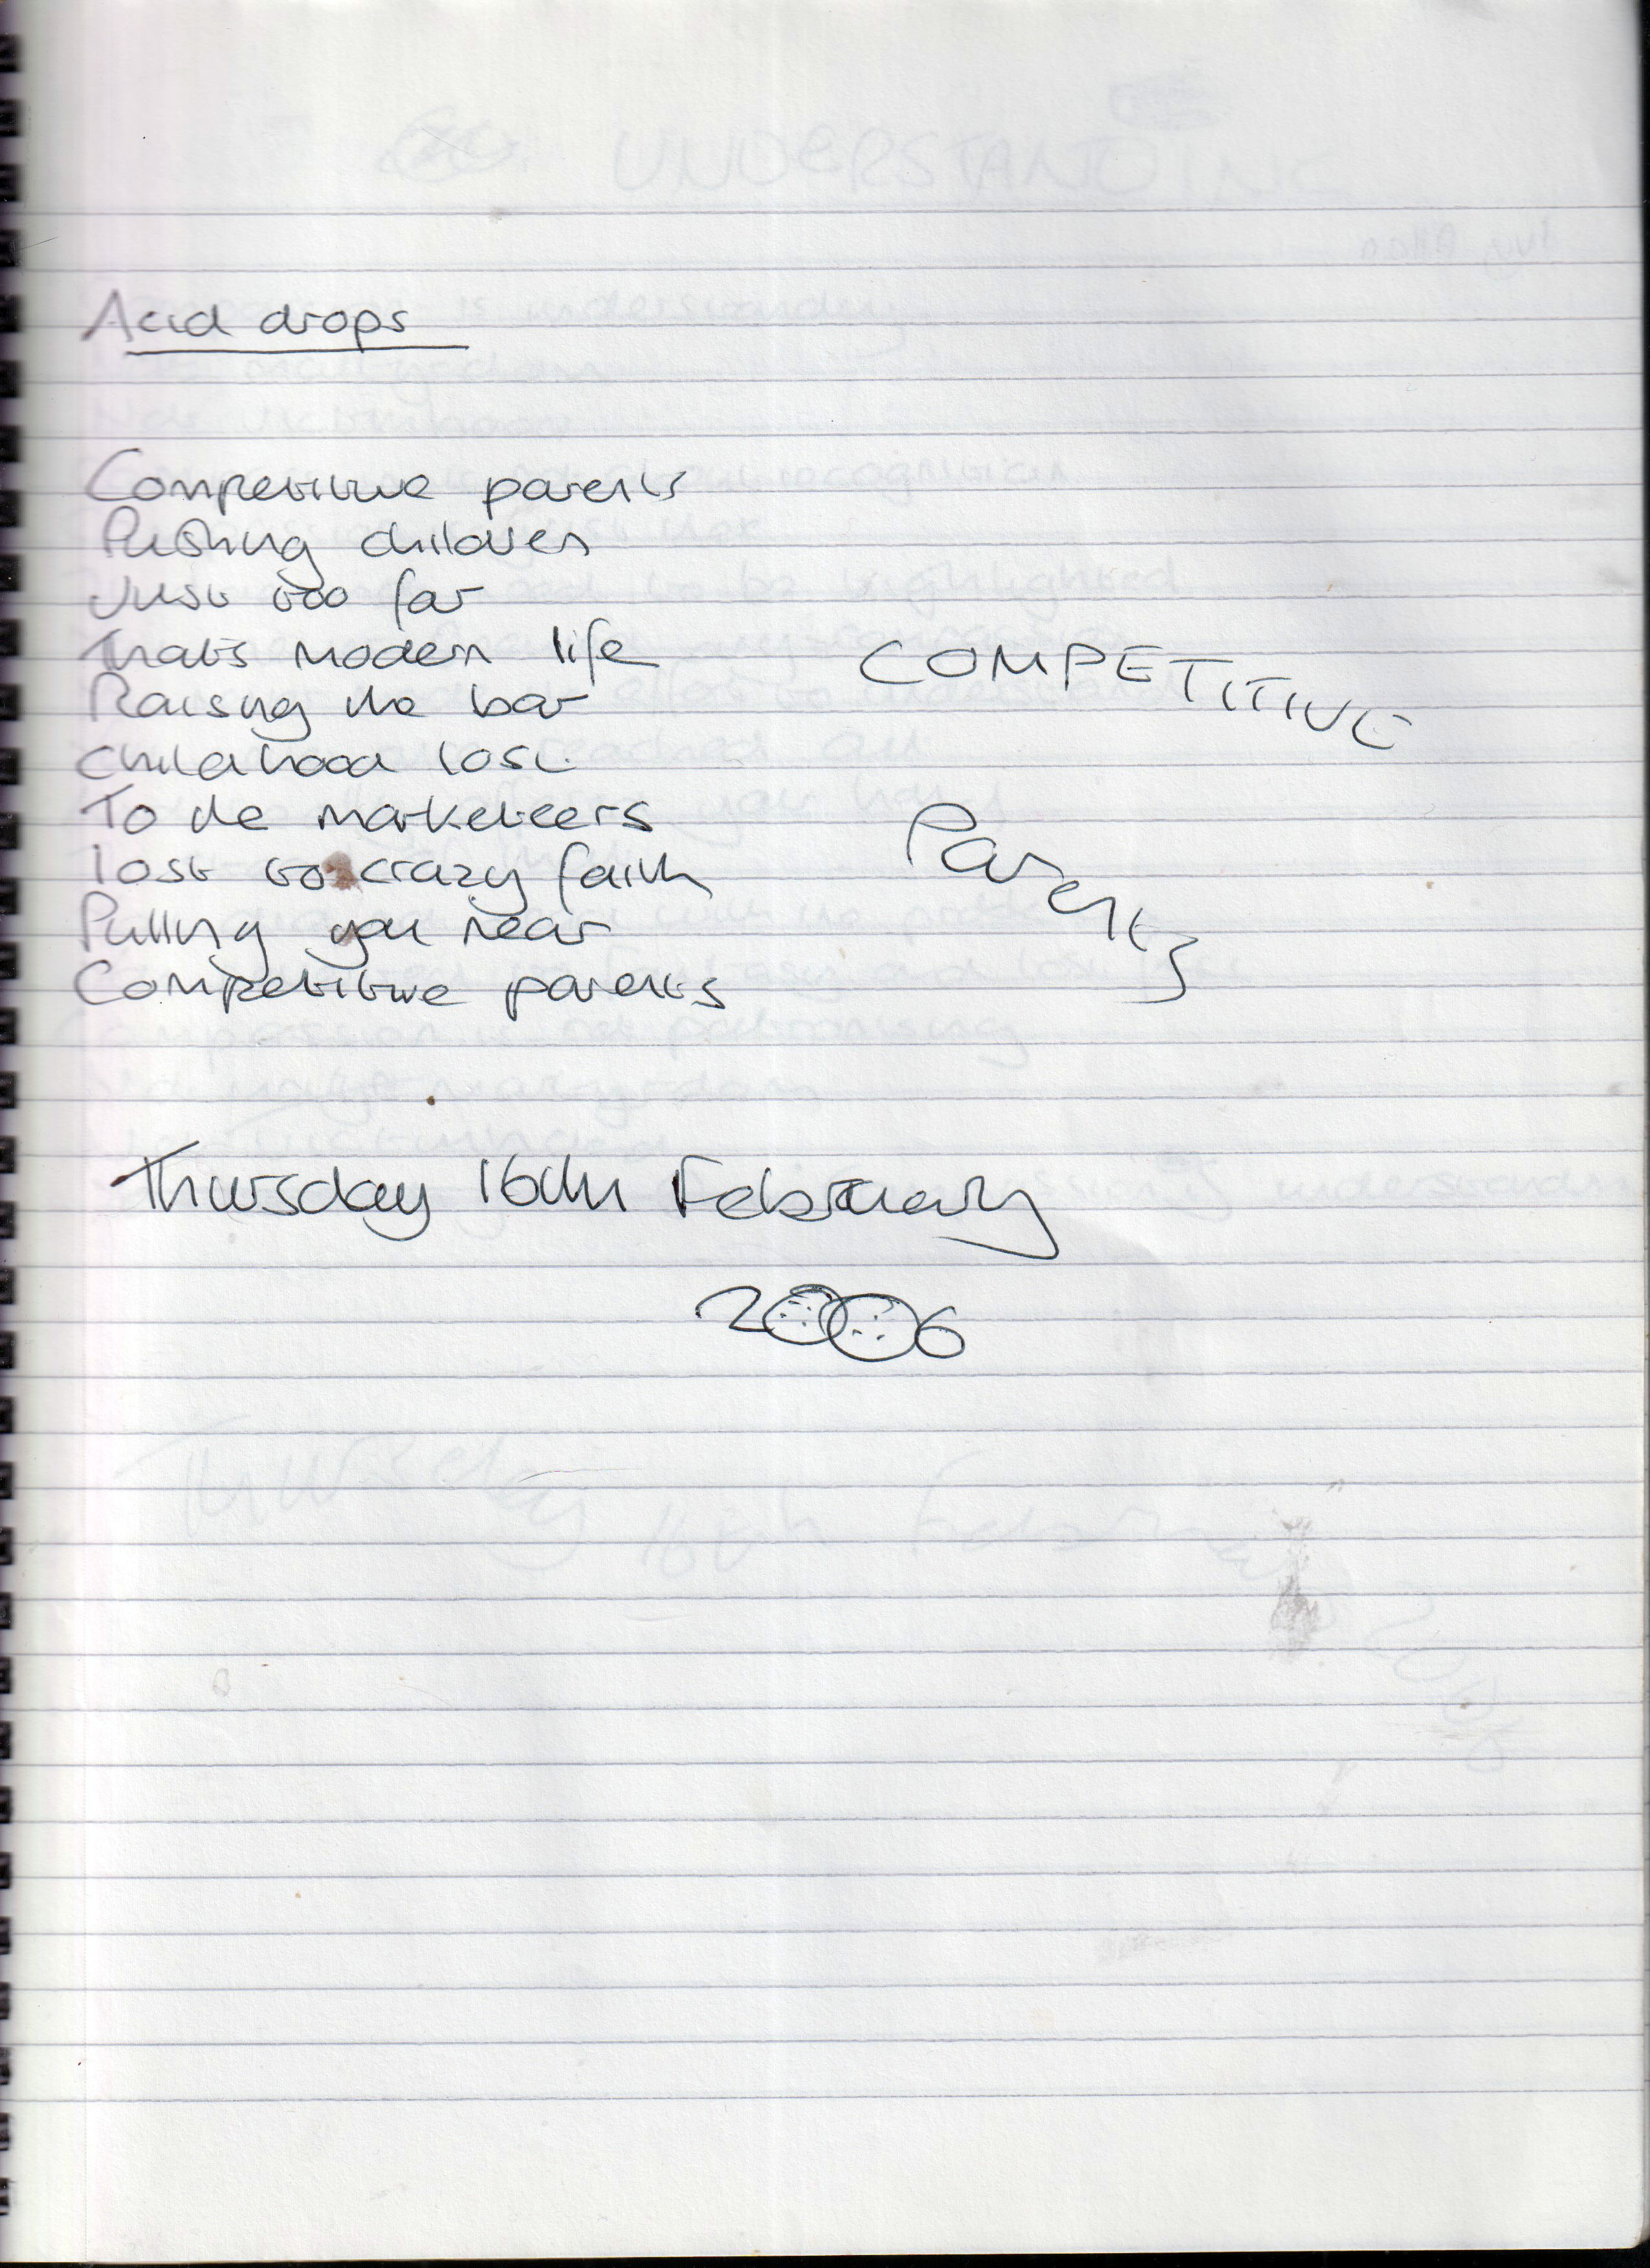 Acid drops
Competitive parents
Pushing children
Just too far
That's modern life
Raising the bar
Childhood lost
To the marketeers
lost to crazy faith
Pulling you near
Competitive parents
COMPETITIVE
Parents
Thursday 16th February
2006